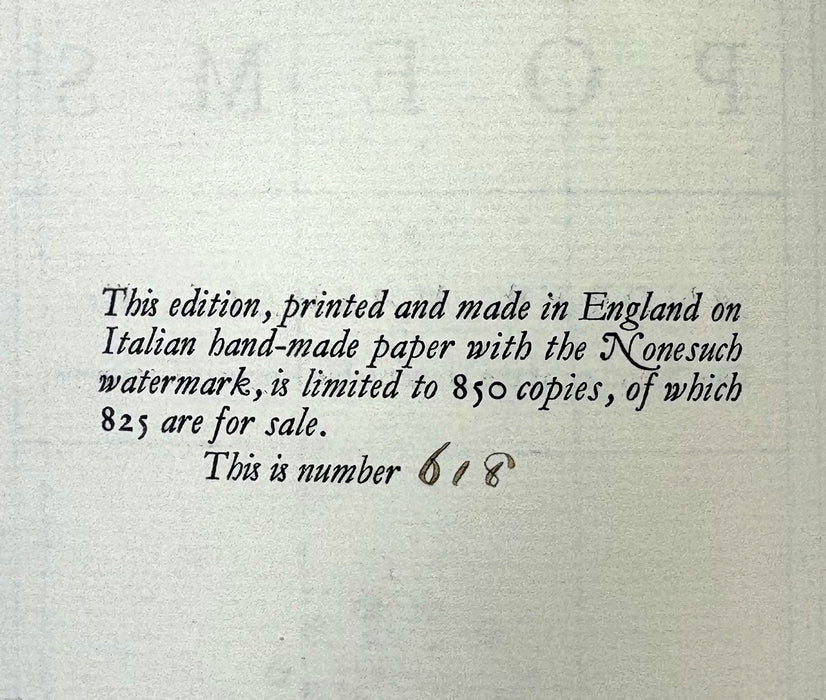 POEMS
This edition, printed and made in England on
Italian hand-made paper with the Nonesuch
watermark, is limited to 850 copies, of which
825 are for sale.
This is number 618